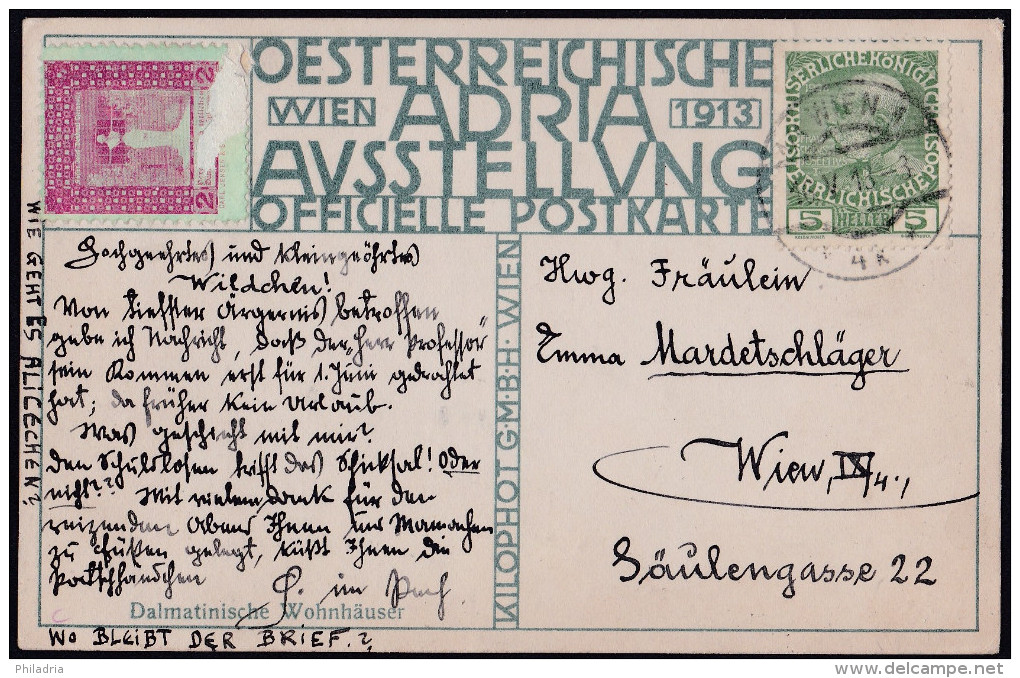 OESTERREICHISCHE
WIEN ADRIA 1913
AVSSTELLVNG
OFFICIELLE POSTKARTE
2 2
KAISERLICHEKÖNIGLICHE
ÖSTERREICHISCHEPOST
5 HELLER 5
WIEN
4k
WIE GEHT ES ALICECHEN?
Hochgeehrtes und kleingeöhrtes
Wildchen!
Von tiefster Ärgernis betroffen
gebe ich Nachricht, daß der „Herr Professor"
sein Kommen erst für 1. Juni gedrahtet
hat; da früher kein Urlaub.
Was geschieht mit mir?
Den Schuldlosen trifft das Schicksal! Oder
nicht?? Mit vielem Dank für den
reizenden Abend Ihnen und Mamachen
zu Füßen gelegt, küßt Ihnen die
Patschhändchen
im Pech
Dalmatinische Wohnhäuser
WO BLEIBT DER BRIEF.?
KILOPHOT G·M·B·H· WIEN
Hwg. Fräulein
Emma Mardetschläger
Wien, IX/4.,
Säulengasse 22
Philadria
delcampe.net